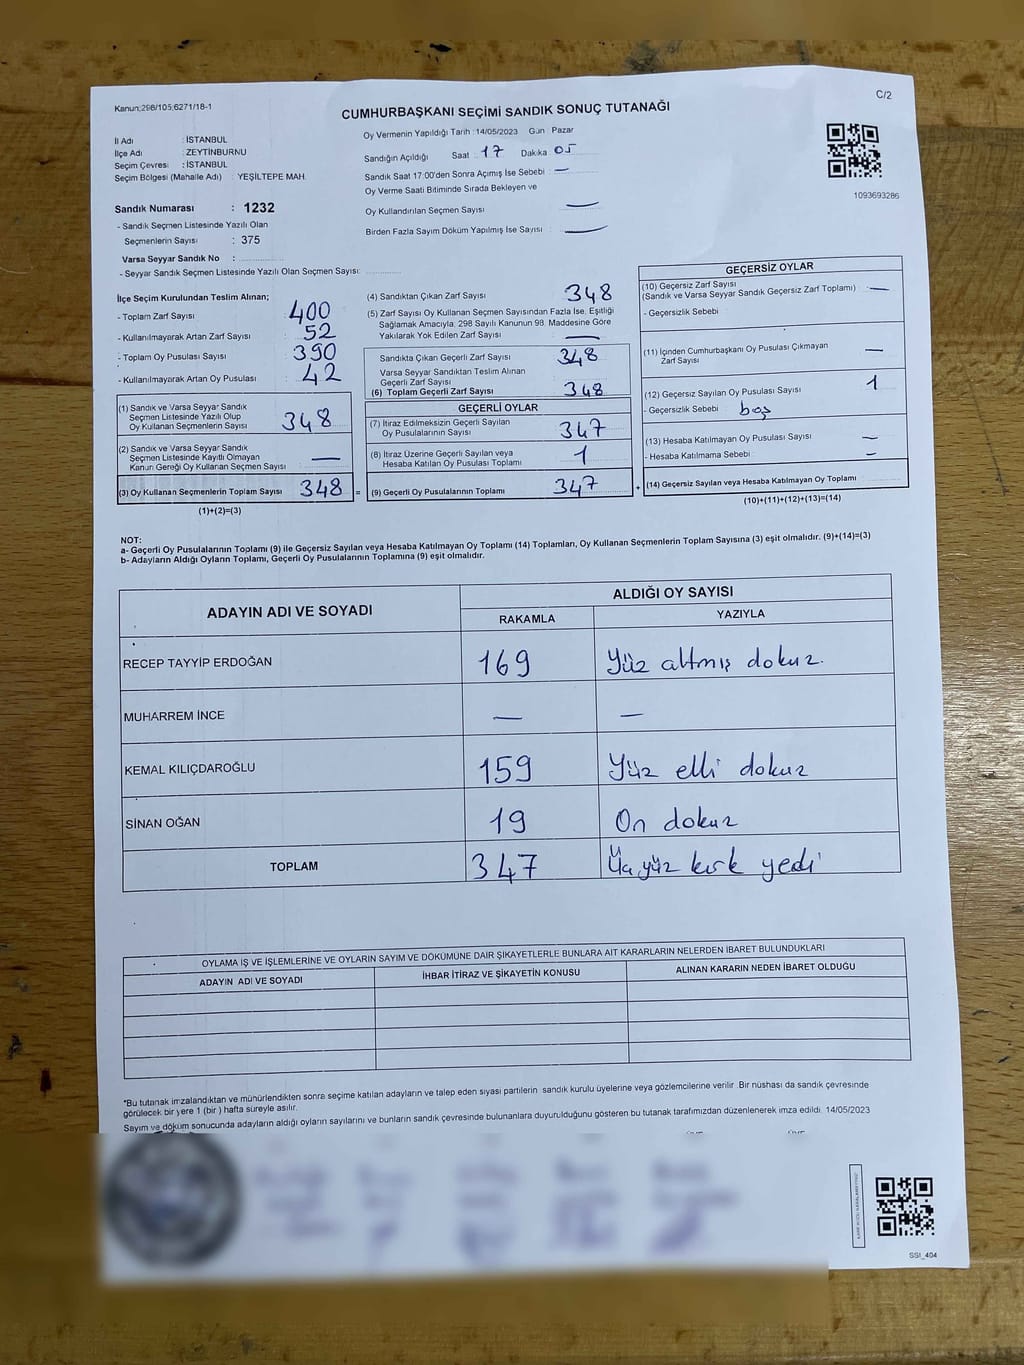 Kanun;298/105;6271/18-1
C/2
CUMHURBAŞKANI SEÇİMİ SANDIK SONUÇ TUTANAĞI
İl Adı : İSTANBUL
İlçe Adı : ZEYTİNBURNU
Seçim Çevresi : İSTANBUL
Seçim Bölgesi (Mahalle Adı) : YEŞİLTEPE MAH.
Sandık Numarası : 1232
- Sandık Seçmen Listesinde Yazılı Olan
Seçmenlerin Sayısı : 375
Varsa Seyyar Sandık No :
- Seyyar Sandık Seçmen Listesinde Yazılı Olan Seçmen Sayısı:
Oy Vermenin Yapıldığı Tarih : 14/05/2023 Gün Pazar
Sandığın Açıldığı Saat : 17 Dakika 05
Sandık Saat 17:00'den Sonra Açımış İse Sebebi : —
Oy Verme Saati Bitiminde Sırada Bekleyen ve
Oy Kullandırılan Seçmen Sayısı —
Birden Fazla Sayım Döküm Yapılmış İse Sayısı : —
1093693286
İlçe Seçim Kurulundan Teslim Alınan;
- Toplam Zarf Sayısı : 400
- Kullanılmayarak Artan Zarf Sayısı : 52
- Toplom Oy Pusulası Sayısı : 390
- Kullanılmayarak Artan Oy Pusulası : 42
(1) Sandık ve Varsa Seyyar Sandık
Seçmen Listesinde Yazılı Olup
Oy Kullanan Seçmenlerin Sayısı 348
(2) Sandık ve Varsa Seyyar Sandık
Seçmen Listesinde Kayıtlı Olmayan
Kanun Gereği Oy Kullanan Seçmen Sayısı —
(3) Oy Kullanan Seçmenlerin Toplam Sayısı 348 =
(1)+(2)=(3)
(4) Sandıktan Çıkan Zarf Sayısı 348
(5) Zarf Sayısı Oy Kullanan Seçmen Sayısından Fazla İse, Eşitliği
Sağlamak Amacıyla, 298 Sayılı Kanunun 98. Maddesine Göre
Yakılarak Yok Edilen Zarf Sayısı —
Sandıkta Çıkan Geçerli Zarf Sayısı 348
Varsa Seyyar Sandıktan Teslim Alınan
Geçerli Zarf Sayısı
(6) Toplam Geçerli Zarf Sayısı 348
GEÇERLİ OYLAR
(7) İtiraz Edilmeksizin Geçerli Sayılan
Oy Pusulalarının Sayısı 347
(8) İtiraz Üzerine Geçerli Sayılan veya
Hesaba Katılan Oy Pusulası Toplamı 1
(9) Geçerli Oy Pusulalarının Toplamı 347 +
GEÇERSİZ OYLAR
(10) Geçersiz Zarf Sayısı
(Sandık ve Varsa Seyyar Sandık Geçersiz Zarf Toplamı) —
- Geçersizlik Sebebi
(11) İçinden Cumhurbaşkanı Oy Pusulası Çıkmayan
Zarf Sayısı —
(12) Geçersiz Sayılan Oy Pusulası Sayısı 1
- Geçersizlik Sebebi boş
(13) Hesaba Katılmayan Oy Pusulası Sayısı —
- Hesaba Katılmama Sebebi : —
(14) Geçersiz Sayılan veya Hesaba Katılmayan Oy Toplamı
(10)+(11)+(12)+(13)=(14)
NOT:
a- Geçerli Oy Pusulalarının Toplamı (9) ile Geçersiz Sayılan veya Hesaba Katılmayan Oy Toplamı (14) Toplamları, Oy Kullanan Seçmenlerin Toplam Sayısına (3) eşit olmalıdır. (9)+(14)=(3)
b- Adayların Aldığı Oyların Toplamı, Geçerli Oy Pusulalarının Toplamına (9) eşit olmalıdır.
ADAYIN ADI VE SOYADI
ALDIĞI OY SAYISI
RAKAMLA YAZIYLA
RECEP TAYYİP ERDOĞAN 169 Yüz altmış dokuz.
MUHARREM İNCE — —
KEMAL KILIÇDAROĞLU 159 Yüz elli dokuz
SİNAN OĞAN 19 On dokuz
TOPLAM 347 Üç yüz kırk yedi
OYLAMA İŞ VE İŞLEMLERİNE VE OYLARIN SAYIM VE DÖKÜMÜNE DAİR ŞİKAYETLERLE BUNLARA AİT KARARLARIN NELERDEN İBARET BULUNDUKLARI
ADAYIN ADI VE SOYADI İHBAR İTİRAZ VE ŞİKAYETİN KONUSU ALINAN KARARIN NEDEN İBARET OLDUĞU
*Bu tutanak imzalandıktan ve mühürlendikten sonra seçime katılan adayların ve talep eden siyasi partilerin sandık kurulu üyelerine veya gözlemcilerine verilir. Bir nüshası da sandık çevresinde
görülecek bir yere 1 (bir) hafta süreyle asılır.
Sayım ve döküm sonucunda adayların aldığı oyların sayılarını ve bunların sandık çevresinde bulunanlara duyurulduğunu gösteren bu tutanak tarafımızdan düzenlenerek imza edildi. 14/05/2023
SSI_404